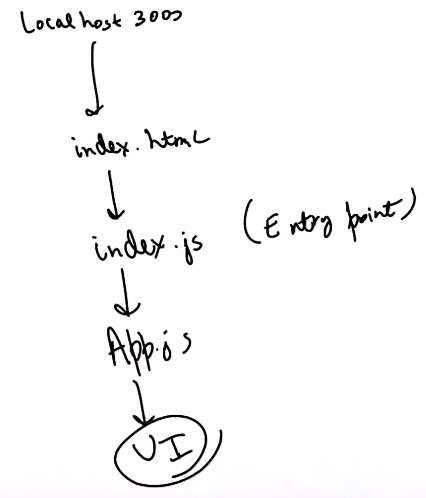 Localhost 3000
index.html
index.js (Entry point)
App.js
UI